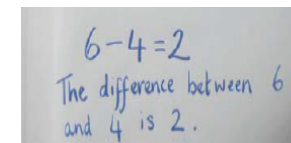 6-4=2
The difference between 6
and 4 is 2.